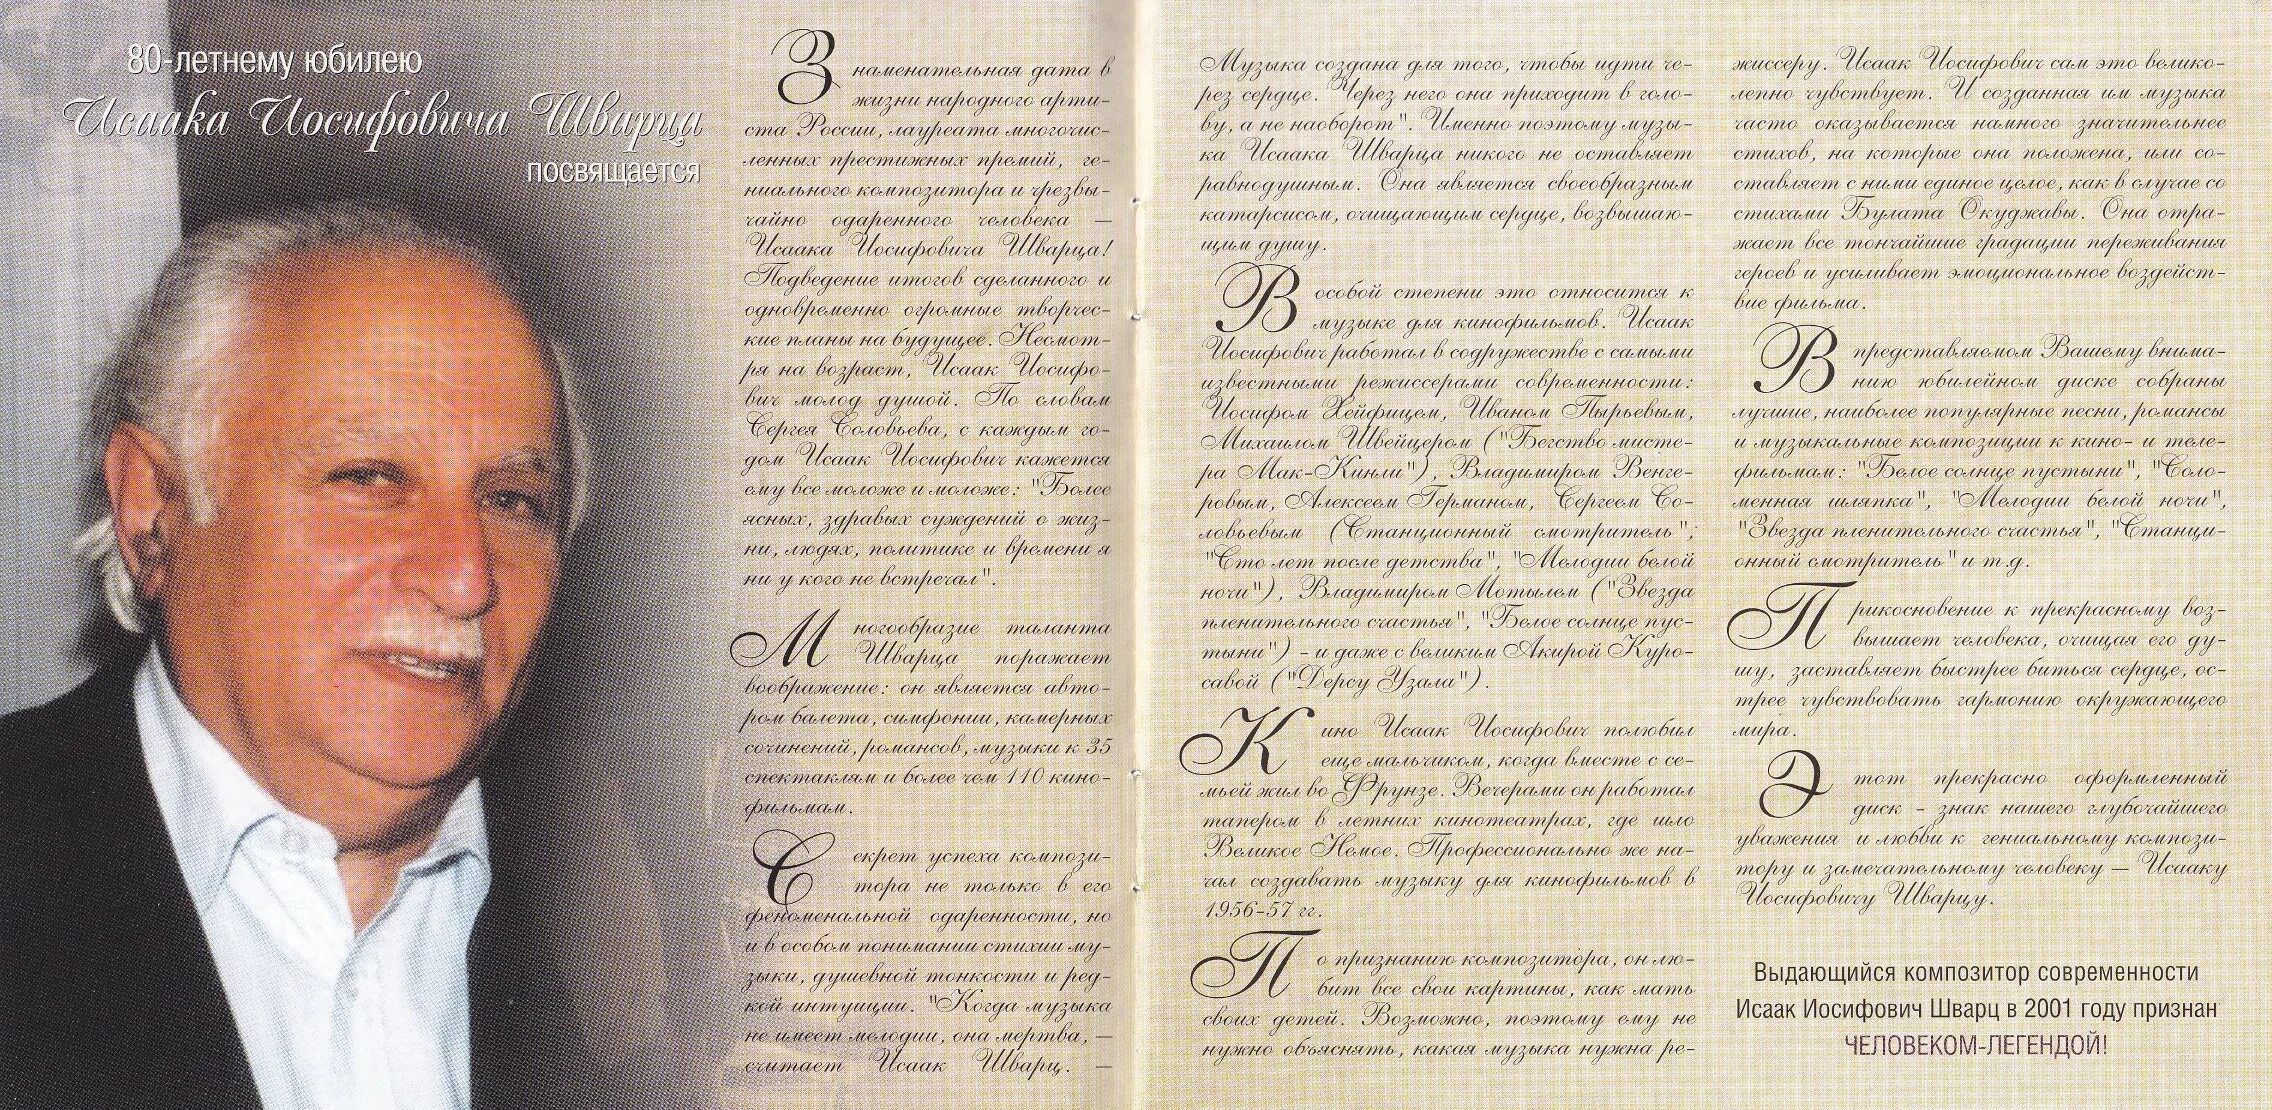 80-летнему юбилею
Исаака Иосифовича Шварца
посвящается
Знаменательная дата в
жизни народного арти-
ста России, лауреата многочис-
ленных престижных премий, ге-
ниального композитора и чрезвы-
чайно одаренного человека —
Исаака Иосифовича Шварца!
Подведение итогов сделанного и
одновременно огромные творчес-
кие планы на будущее. Несмот-
ря на возраст, Исаак Иосифо-
вич молод душой. По словам
Сергея Соловьева, с каждым го-
дом Исаак Иосифович кажется
ему все моложе и моложе: "Более
ясных, здравых суждений о жиз-
ни, людях, политике и времени я
ни у кого не встречал".
Многообразие таланта
Шварца поражает
воображение: он является авто-
ром балета, симфонии, камерных
сочинений, романсов, музыки к 35
спектаклям и более чем 110 кино-
фильмам.
Секрет успеха компози-
тора не только в его
феноменальной одаренности, но
и в особом понимании стихии му-
зыки, душевной тонкости и ред-
кой интуиции. "Когда музыка
не имеет мелодии, она мертва, —
считает Исаак Шварц. —
Музыка создана для того, чтобы идти че-
рез сердце. Через него она приходит в голо-
ву, а не наоборот". Именно поэтому музы-
ка Исаака Шварца никого не оставляет
равнодушным. Она является своеобразным
катарсисом, очищающим сердце, возвышаю-
щим душу.
В особой степени это относится к
музыке для кинофильмов. Исаак
Иосифович работал в содружестве с самыми
известными режиссерами современности:
Иосифом Хейфицем, Иваном Пырьевым,
Михаилом Швейцером ("Бегство мисте-
ра Мак-Кинли"), Владимиром Венге-
ровым, Алексеем Германом, Сергеем Со-
ловьевым (Станционный смотритель";
"Сто лет после детства", "Мелодии белой
ночи"), Владимиром Мотылем ("Звезда
пленительного счастья", "Белое солнце пус-
тыни") - и даже с великим Акирой Куро-
савой ("Дерсу Узала").
Кино Исаак Иосифович полюбил
еще мальчиком, когда вместе с се-
мьей жил во Фрунзе. Вечерами он работал
тапером в летних кинотеатрах, где шло
Великое Немое. Профессионально же на-
чал создавать музыку для кинофильмов в
1956-57 гг.
По признанию композитора, он лю-
бит все свои картины, как мать
своих детей. Возможно, поэтому ему не
нужно объяснять, какая музыка нужна ре-
жиссеру. Исаак Иосифович сам это велико-
лепно чувствует. И созданная им музыка
часто оказывается намного значительнее
стихов, на которые она положена, или со-
ставляет с ними единое целое, как в случае со
стихами Булата Окуджавы. Она отра-
жает все тончайшие градации переживания
героев и усиливает эмоциональное воздейст-
вие фильма.
В представляемом Вашему внима-
нию юбилейном диске собраны
лучшие, наиболее популярные песни, романсы
и музыкальные композиции к кино- и теле-
фильмам: "Белое солнце пустыни", "Соло-
менная шляпка", "Мелодии белой ночи",
"Звезда пленительного счастья", "Станци-
онный смотритель" и т.д.
Прикосновение к прекрасному воз-
вышает человека, очищая его ду-
шу, заставляет быстрее биться сердце, ос-
трее чувствовать гармонию окружающего
мира.
Этот прекрасно оформленный
диск - знак нашего глубочайшего
уважения и любви к гениальному компози-
тору и замечательному человеку — Исааку
Иосифовичу Шварцу.
Выдающийся композитор современности
Исаак Иосифович Шварц в 2001 году признан
ЧЕЛОВЕКОМ-ЛЕГЕНДОЙ!